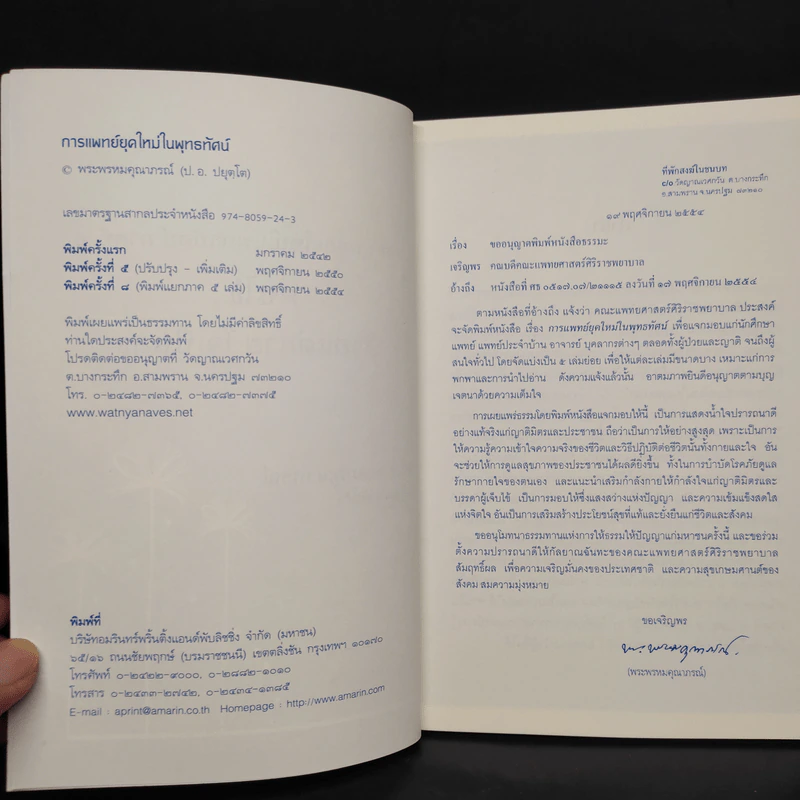 การแพทย์ยุคใหม่ในพุทธทัศน์
© พระพรหมคุณาภรณ์ (ป. อ. ปยุตฺโต)
เลขมาตรฐานสากลประจำหนังสือ 974-8059-24-3
พิมพ์ครั้งแรก มกราคม ๒๕๔๒
พิมพ์ครั้งที่ ๕ (ปรับปรุง - เพิ่มเติม) พฤศจิกายน ๒๕๕๐
พิมพ์ครั้งที่ ๘ (พิมพ์แยกภาค ๕ เล่ม) พฤศจิกายน ๒๕๕๔
พิมพ์เผยแพร่เป็นธรรมทาน โดยไม่มีค่าลิขสิทธิ์
ท่านใดประสงค์จะจัดพิมพ์
โปรดติดต่อขออนุญาตที่ วัดญาณเวศกวัน
ต.บางกระทึก อ.สามพราน จ.นครปฐม ๗๓๒๑๐
โทร. ๐-๒๔๘๒-๗๓๖๕, ๐-๒๔๘๒-๗๓๗๕
www.watnyanaves.net
พิมพ์ที่
บริษัทอมรินทร์พริ้นติ้งแอนด์พับลิชชิ่ง จำกัด (มหาชน)
๖๕/๑๖ ถนนชัยพฤกษ์ (บรมราชชนนี) เขตตลิ่งชัน กรุงเทพฯ ๑๐๑๗๐
โทรศัพท์ ๐-๒๔๒๒-๙๐๐๐, ๐-๒๘๘๒-๑๐๑๐
โทรสาร ๐-๒๔๓๓-๒๗๔๒, ๐-๒๔๓๔-๑๓๘๕
E-mail : aprint@amarin.co.th Homepage : http://www.amarin.com
ที่พักสงฆ์ในชนบท
c/o วัดญาณเวศกวัน ต.บางกระทึก
อ.สามพราน จ.นครปฐม ๗๓๒๑๐
๑๙ พฤศจิกายน ๒๕๕๔
เรื่อง ขออนุญาตพิมพ์หนังสือธรรมะ
เจริญพร คณบดีคณะแพทยศาสตร์ศิริราชพยาบาล
อ้างถึง หนังสือที่ ศธ ๐๕๑๗.๐๗/๒๑๑๑๕ ลงวันที่ ๑๗ พฤศจิกายน ๒๕๕๔
ตามหนังสือที่อ้างถึง แจ้งว่า คณะแพทยศาสตร์ศิริราชพยาบาล ประสงค์
จะจัดพิมพ์หนังสือ เรื่อง การแพทย์ยุคใหม่ในพุทธทัศน์ เพื่อแจกมอบแก่นักศึกษา
แพทย์ แพทย์ประจำบ้าน อาจารย์ บุคลากรต่างๆ ตลอดทั้งผู้ป่วยและญาติ จนถึงผู้
สนใจทั่วไป โดยจัดแบ่งเป็น ๕ เล่มย่อย เพื่อให้แต่ละเล่มมีขนาดบาง เหมาะแก่การ
พกพาและการนำไปอ่าน ดังความแจ้งแล้วนั้น อาตมภาพยินดีอนุญาตตามบุญ
เจตนาด้วยความเต็มใจ
การเผยแพร่ธรรมโดยพิมพ์หนังสือแจกมอบให้นี้ เป็นการแสดงน้ำใจปรารถนาดี
อย่างแท้จริงแก่ญาติมิตรและประชาชน ถือว่าเป็นการให้อย่างสูงสุด เพราะเป็นการ
ให้ความรู้ความเข้าใจความจริงของชีวิตและวิธีปฏิบัติต่อชีวิตนั้นทั้งกายและใจ อัน
จะช่วยให้การดูแลสุขภาพของประชาชนได้ผลดียิ่งขึ้น ทั้งในการบำบัดโรคภัยดูแล
รักษากายใจของตนเอง และแนะนำเสริมกำลังกายให้กำลังใจแก่ญาติมิตรและ
บรรดาผู้เจ็บไข้ เป็นการมอบให้ซึ่งแสงสว่างแห่งปัญญา และความเข้มแข็งสดใส
แห่งจิตใจ อันเป็นการเสริมสร้างประโยชน์สุขที่แท้และยั่งยืนแก่ชีวิตและสังคม
ขออนุโมทนาธรรมทานแห่งการให้ธรรมให้ปัญญาแก่มหาชนครั้งนี้ และขอร่วม
ตั้งความปรารถนาดีให้กัลยาณฉันทะของคณะแพทยศาสตร์ศิริราชพยาบาล
สัมฤทธิ์ผล เพื่อความเจริญมั่นคงของประเทศชาติ และความสุขเกษมศานต์ของ
สังคม สมความมุ่งหมาย
ขอเจริญพร
พระพรหมคุณาภรณ์
(พระพรหมคุณาภรณ์)